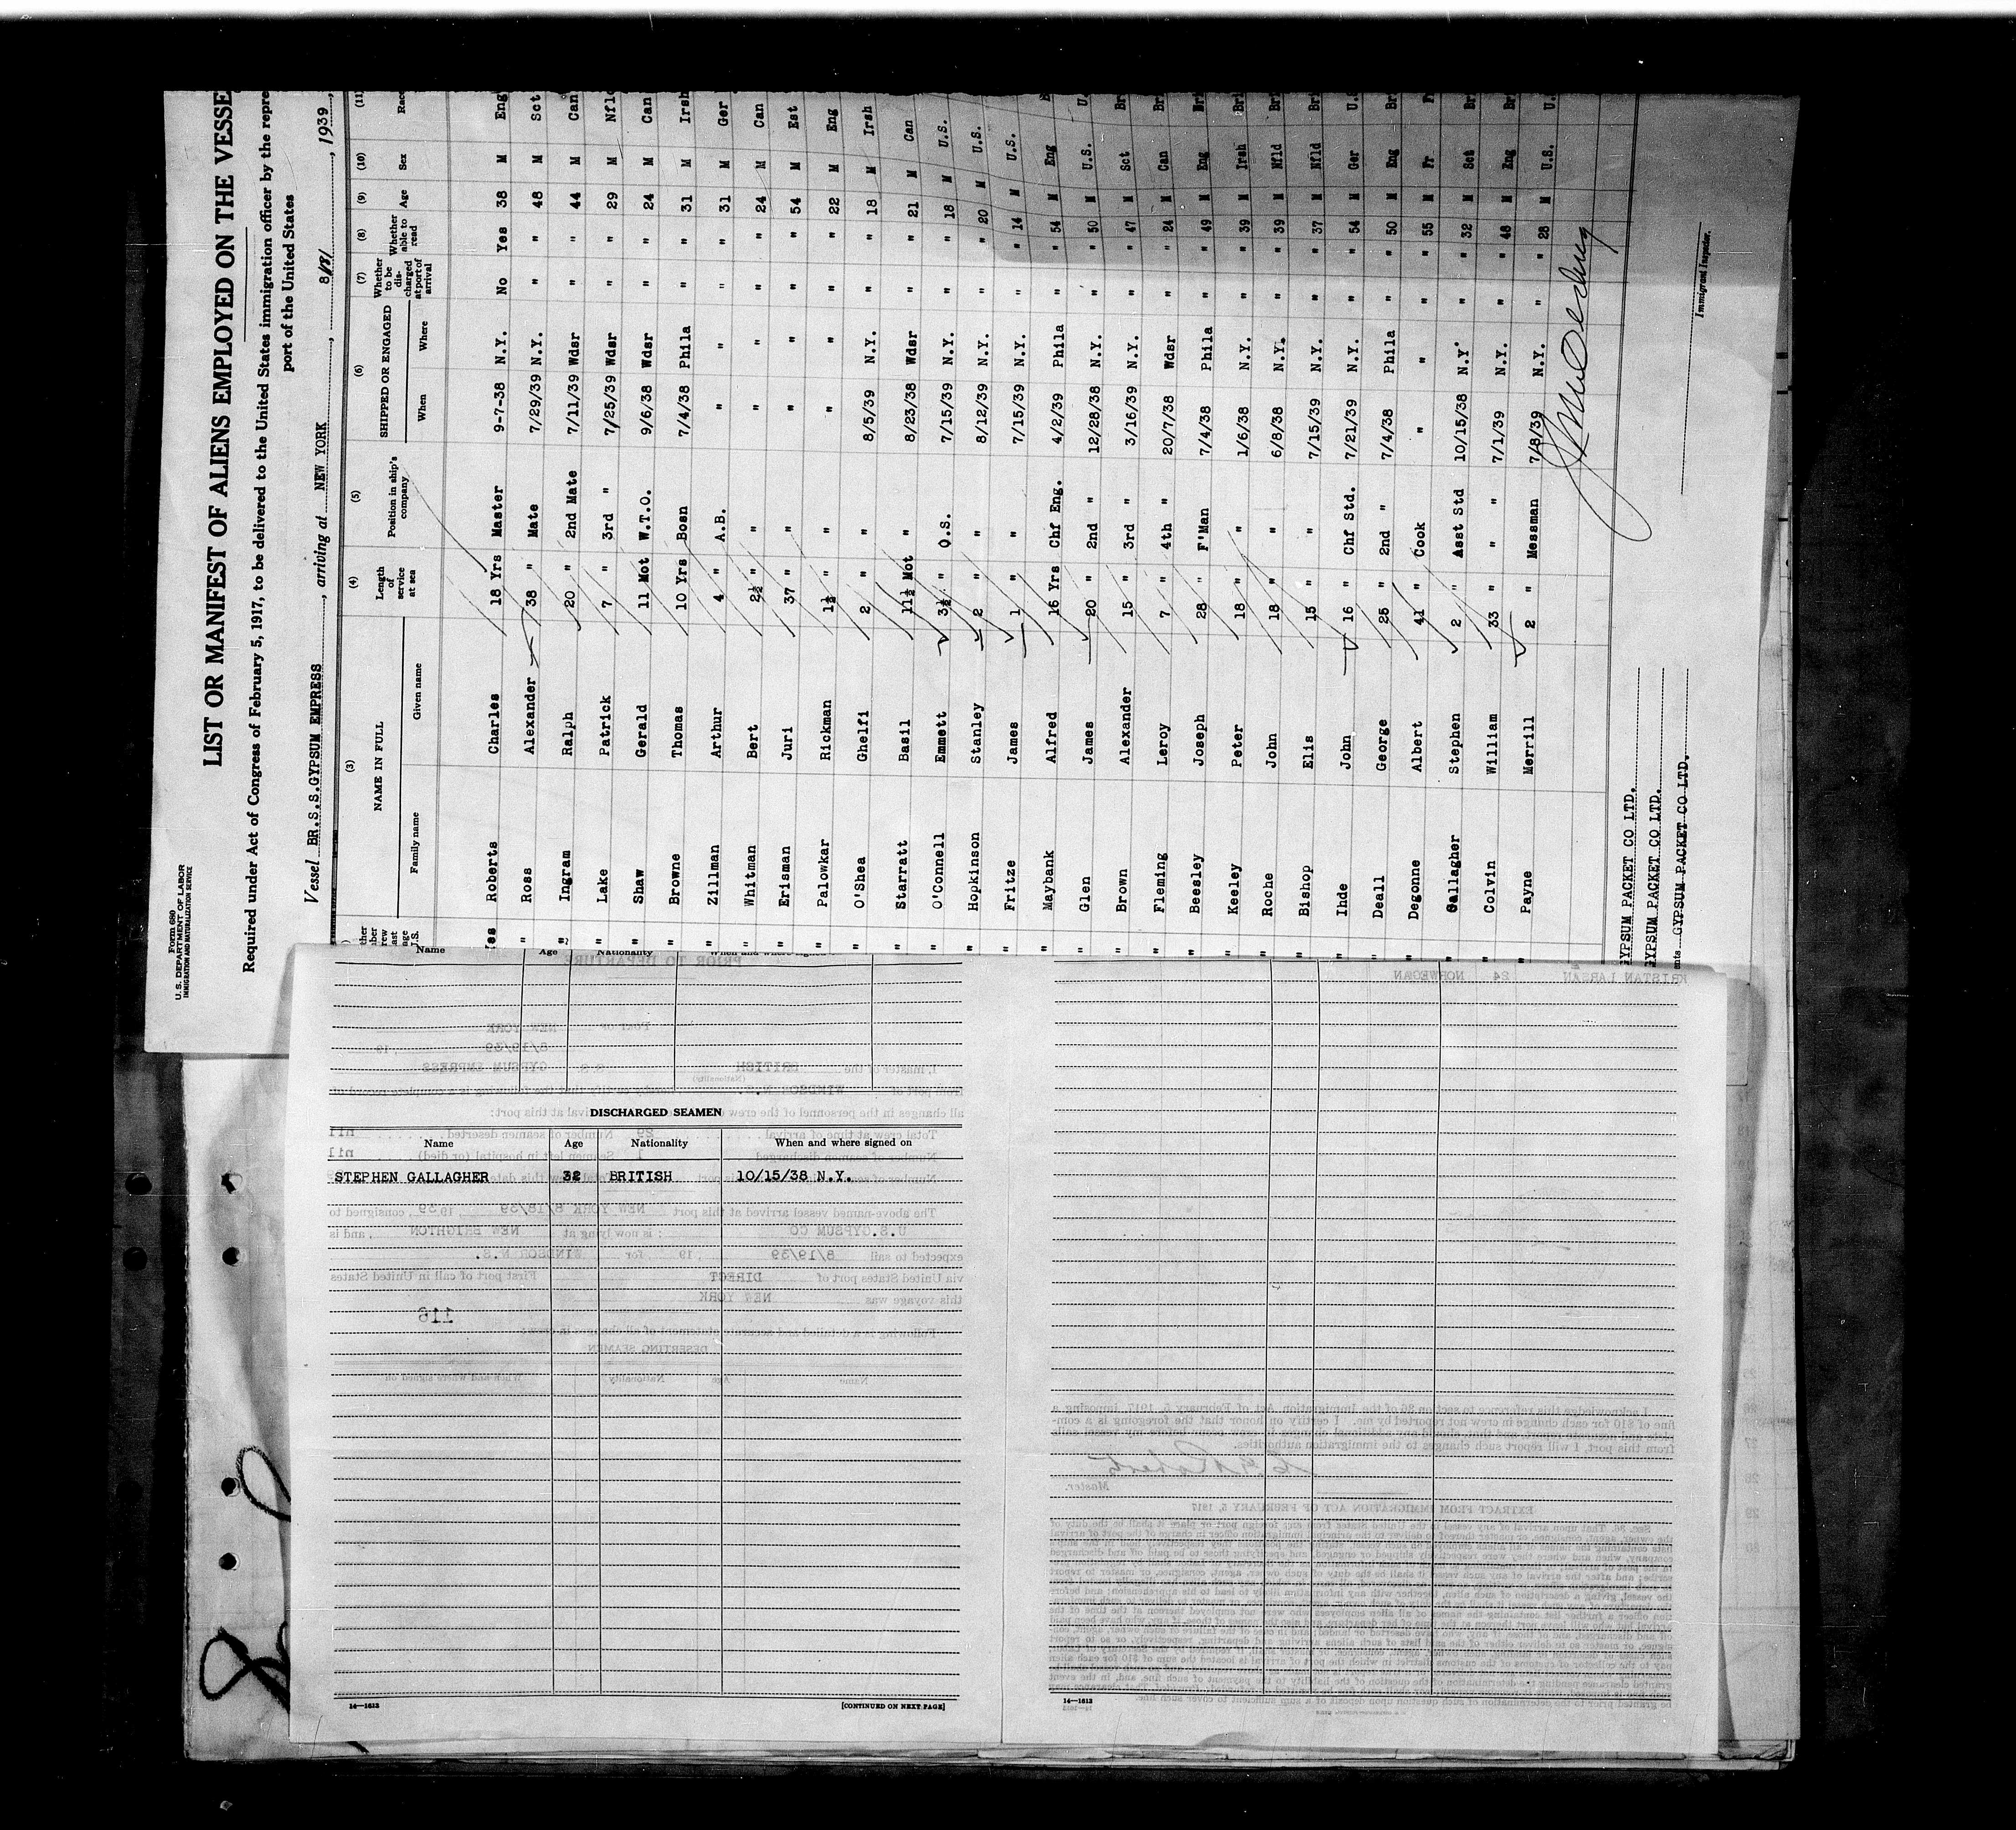 Form 680
U. S. DEPARTMENT OF LABOR
IMMIGRATION AND NATURALIZATION SERVICE
LIST OR MANIFEST OF ALIENS EMPLOYED ON THE VESSE
Required under Act of Congress of February 5, 1917, to be delivered to the United States immigration officer by the repre
port of the United States
Vessel BR.S.S.GYPSUM EMPRESS, arriving at NEW YORK, 8/18/, 1939,
(3) (4) (5) (6) (7) (8) (9) (10) (11)
NAME IN FULL Length of service at sea Position in ship's company SHIPPED OR ENGAGED Whether to be discharged at port of arrival Whether able to read Age Sex Race
Family name Given name When Where
Roberts Charles 18 Yrs Master 9-7-38 N.Y. No Yes 38 M Eng
" Ross Alexander 38 " Mate 7/29/39 N.Y. " " 48 M Sct
" Ingram Ralph 20 " 2nd Mate 7/11/39 Wdsr " " 44 M Can
" Lake Patrick 7 " 3rd " 7/25/39 Wdsr " " 29 M Nfl
" Shaw Gerald 11 Mot W.T.O. 9/6/38 Wdsr " " 24 M Can
" Browne Thomas 10 Yrs Bosn 7/4/38 Phila " " 31 M Irsh
" Zillman Arthur 4 " A.B. " " " " 31 M Ger
" Whitman Bert 2½ " " " " " " 24 M Can
" Erisman Juri 37 " " " " " " 54 M Est
" Palowkar Rickman 1½ " " " " " " 22 M Eng
" O'Shea Ghelfi 2 " " 8/5/39 N.Y. " " 18 M Irsh
" Starratt Basil 11½ Mot " 8/23/38 Wdsr " " 21 M Can
" O'Connell Emmett 3½ " O.S. 7/15/39 N.Y. " " 18 M U.S.
" Hopkinson Stanley 2 " " 8/12/39 N.Y. " " 20 M U.S.
" Fritze James 1 " " 7/15/39 N.Y. " " 14 M U.S.
" Maybank Alfred 16 Yrs Chf Eng. 4/2/39 Phila " " 54 M Eng
" Glen James 20 " 2nd " 12/28/38 N.Y. " " 50 M U.S. U.
" Brown Alexander 15 " 3rd " 3/16/39 N.Y. " " 47 M Sct Br
" Fleming Leroy 7 " 4th " 20/7/38 Wdsr " " 24 M Can Br
" Beesley Joseph 28 " F'Man 7/4/38 Phila " " 49 M Eng Bri
" Keeley Peter 18 " " 1/6/38 N.Y. " " 39 M Irsh Bri
" Roche John 18 " " 6/8/38 N.Y. " " 39 M Nfld Bri
" Bishop Elis 15 " " 7/15/39 N.Y. " " 37 M Nfld Bri
" Ihde John 16 " Chf Std. 7/21/39 N.Y. " " 54 M Ger U.
" Deall George 25 " 2nd " 7/4/38 Phila " " 50 M Eng Br
" Degonne Albert 41 " Cook " " " " 55 M Fr Fr
" Gallagher Stephen 2 " Asst Std 10/15/38 N.Y. " " 32 M Sct Br
" Colvin William 33 " " 7/1/39 N.Y. " " 48 M Eng Br
" Payne Merrill 2 " Messman 7/8/39 N.Y. " " 28 M U.S. U.
GYPSUM PACKET CO LTD.
GYPSUM PACKET CO LTD.
GYPSUM PACKET CO LTD.
Immigrant Inspector.
Name Age Nationality When and where signed on
DISCHARGED SEAMEN
Name Age Nationality When and where signed on
STEPHEN GALLAGHER 32 BRITISH 10/15/38 N.Y.
14—1613
[CONTINUED ON NEXT PAGE]
14—1613